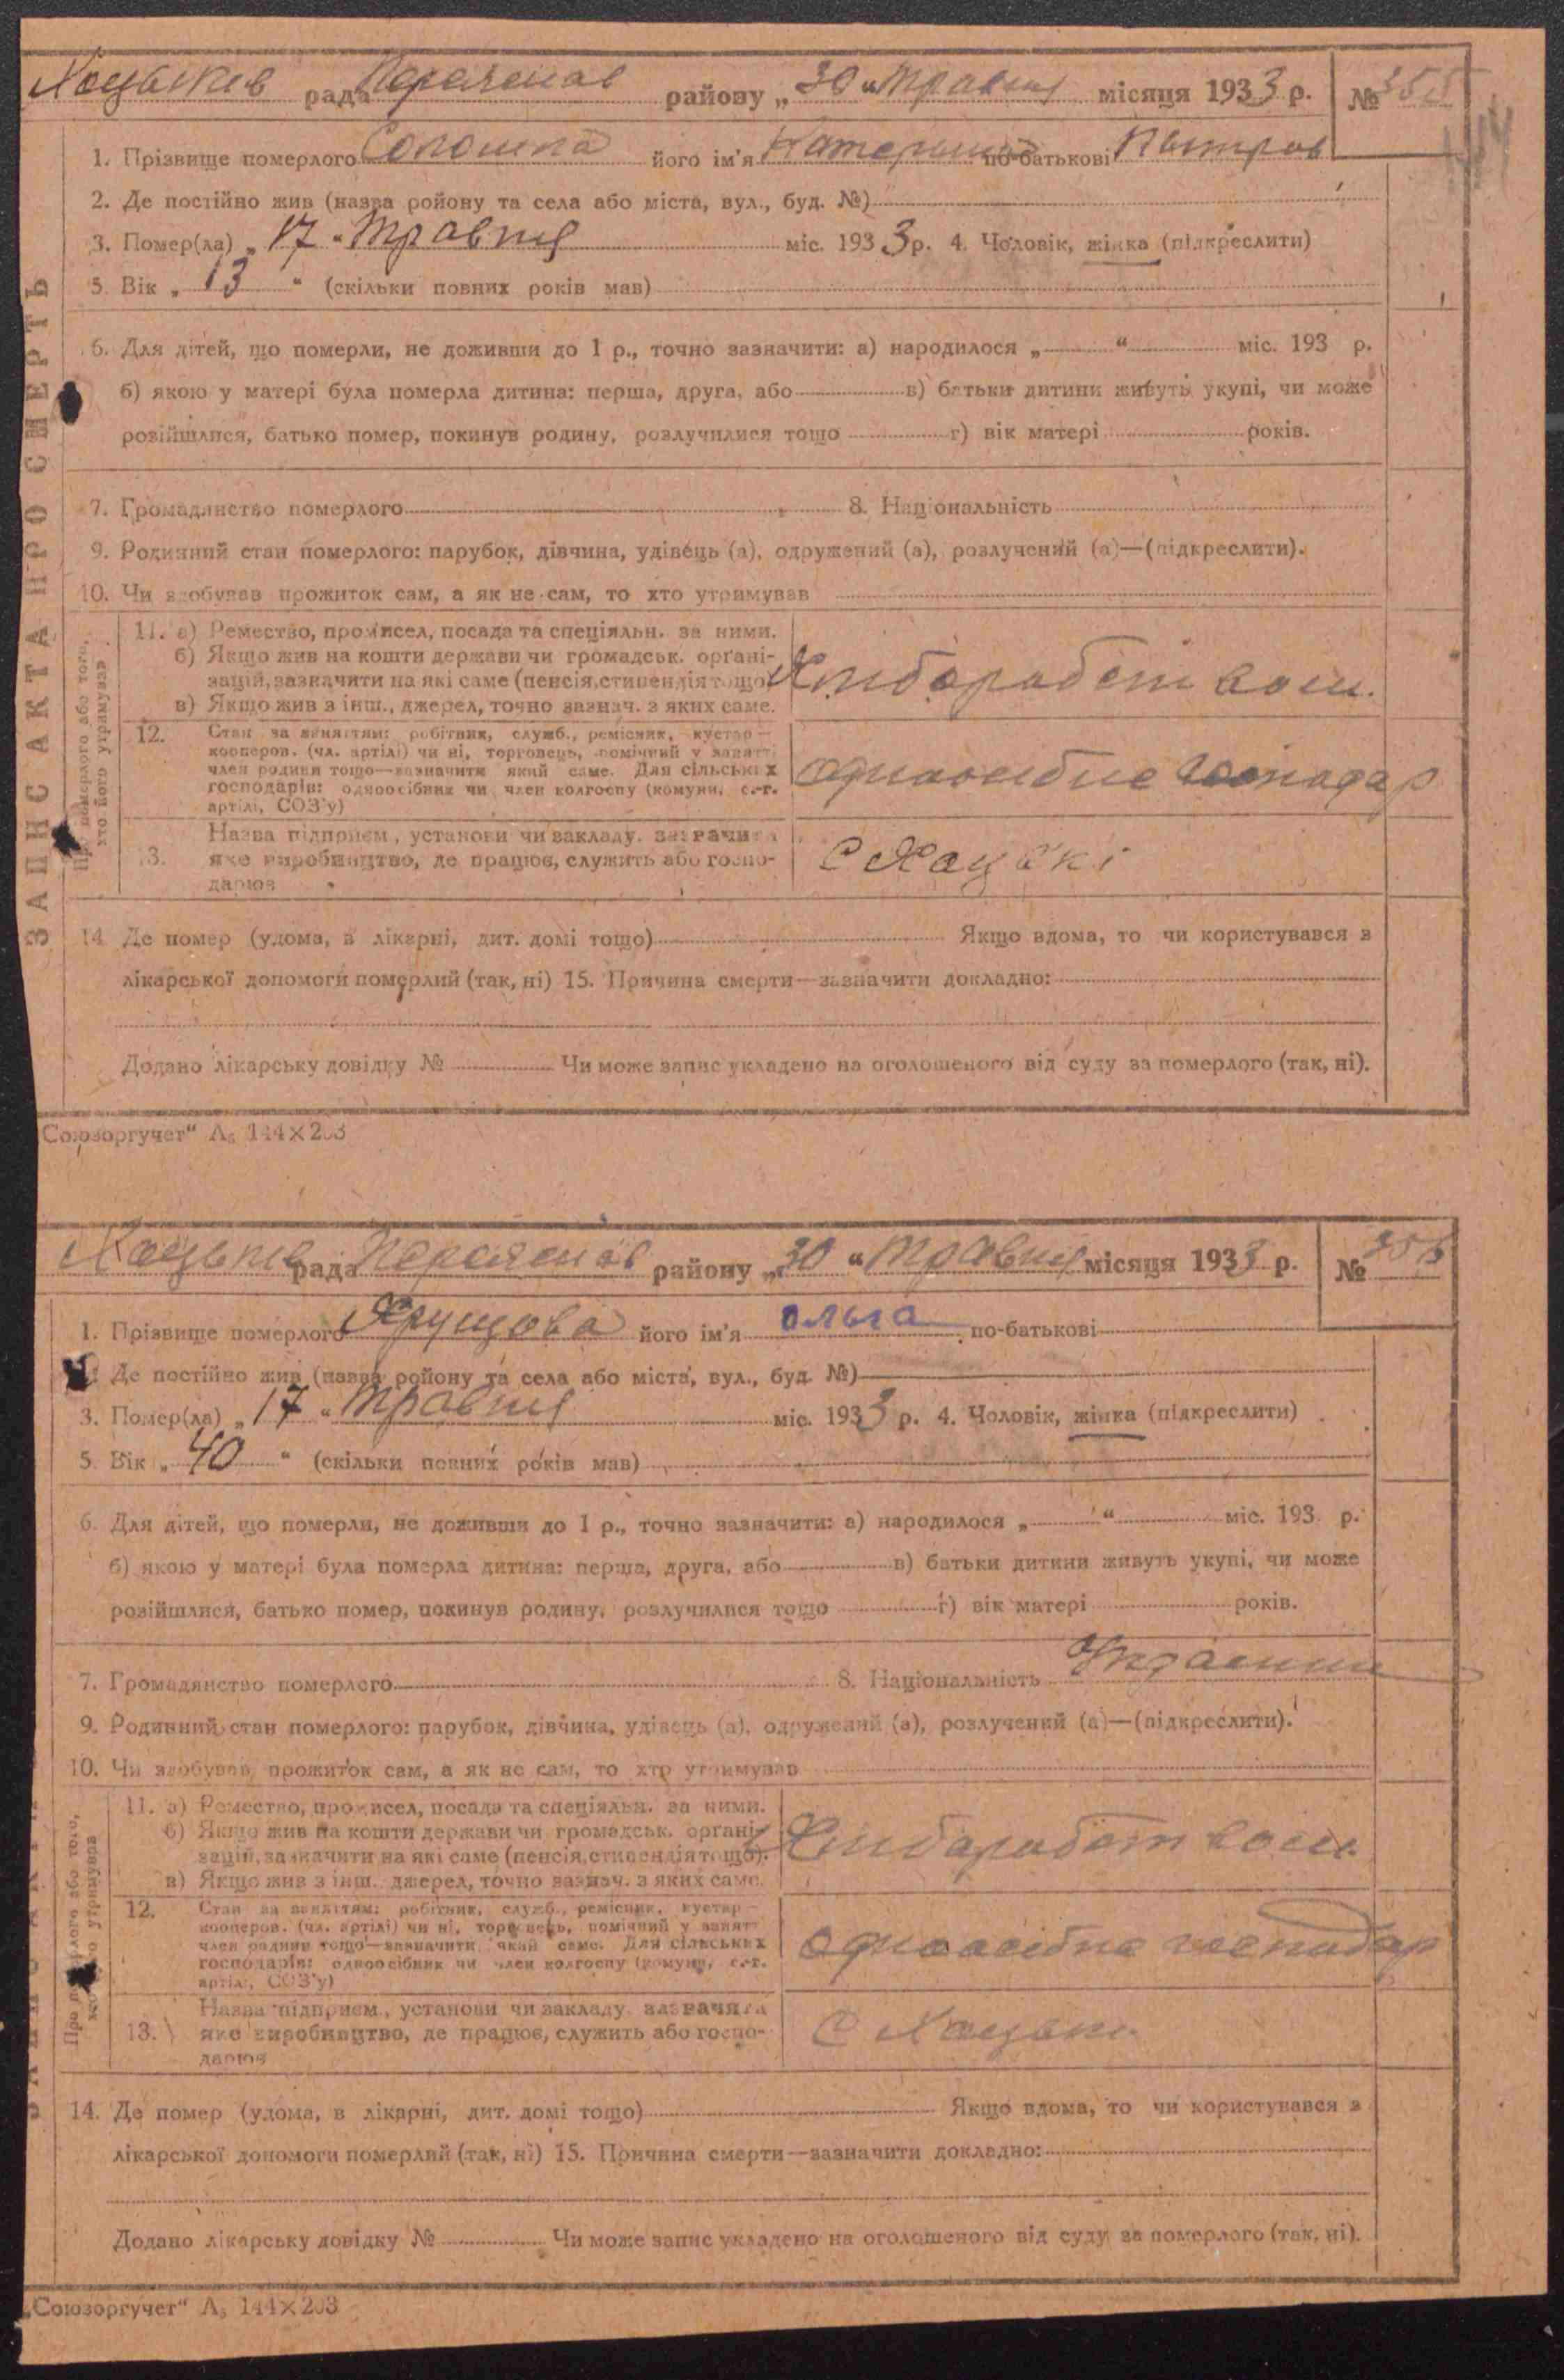 Хацьків рада районy „30“ Травня місяця 1933 р. № 355
1. Прізвище померлого його ім'я Катерина по-батькові Пытров
2. Де постійно жив (назва ройону та села або міста, вул., буд. №)
3. Помер(ла) „17“ Травня міс. 1933 р. 4. Чоловік, жінка (підкреслити)
5. Вік „13“ (скільки повних років мав)
6. Для дітей, що померли, не доживши до 1 р., точно зазначити: а) народилося „ “ міс. 193 р.
б) якою у матері була померла дитина: перша, друга, або в) батьки дитини живуть укупі, чи може
розійшлися, батько помер, покинув родину, розлучилися тощо г) вік матері років.
7. Громадянство померлого 8. Національність
9. Родинний стан померлого: парубок, дівчина, удівець (а), одружений (а), розлучений (а)—(підкреслити).
10. Чи здобував прожиток сам, а як не сам, то хто утримував
ЗАПИС АКТА ПРО СМЕРТЬ
Про померлого або того,
хто його утримував
11. а) Ремество, промисел, посада та спеціяльн. за ними.
б) Якщо жив на кошти держави чи громадськ. орґані-
зацій, зазначити на які саме (пенсія, стипендія тощо).
в) Якщо жив з інш., джерел, точно зазнач. з яких саме.
Хліборобст
12. Стан за заняттям: робітник, служб., ремісник, кустар—
кооперов. (чл. артілі) чи ні, торговець, помічний у занятті
член родини тощо—зазначити який саме. Для сільських
господарів: одноосібник чи член колгоспу (комуни, с.-г.
артілі, СОЗ'у)
одноосибне господар
13. Назва підприєм., установи чи закладу, зазначити
яке виробництво, де працює, служить або госпо-
дарює
С Хацькі
14. Де помер (удома, в лікарні, дит. домі тощо) Якщо вдома, то чи користувався з
лікарської допомоги померлий (так, ні) 15. Причина смерти—зазначити докладно:
Додано лікарську довідку № Чи може запис укладено на оголошеного від суду за померлого (так, ні).
„Союзоргучет“ А₅ 144×203
Хацьків рада району „30“ Травня місяця 1933 р. № 356
1. Прізвище померлого Хрущова його ім'я Ольга по-батькові
2. Де постійно жив (назва ройону та села або міста, вул., буд. №)
3. Помер(ла) „17“ Травня міс. 1933 р. 4. Чоловік, жінка (підкреслити)
5. Вік „40“ (скільки повних років мав)
6. Для дітей, що померли, не доживши до 1 р., точно зазначити: а) народилося „ “ міс. 193 р.
б) якою у матері була померла дитина: перша, друга, або в) батьки дитини живуть укупі, чи може
розійшлися, батько помер, покинув родину, розлучилися тощо г) вік матері років.
7. Громадянство померлого 8. Національність
9. Родинний стан померлого: парубок, дівчина, удівець (а), одружений (а), розлучений (а)—(підкреслити).
10. Чи здобував прожиток сам, а як не сам, то хто утримував
Про померлого або того,
хто його утримував
11. а) Ремество, промисел, посада та спеціяльн. за ними.
б) Якщо жив на кошти держави чи громадськ. орґані-
зацій, зазначити на які саме (пенсія, стипендія тощо).
в) Якщо жив з інш., джерел, точно зазнач. з яких саме.
Хліборобст
12. Стан за заняттям: робітник, служб., ремісник, кустар—
кооперов. (чл. артілі) чи ні, торговець, помічний у занятті
член родини тощо—зазначити який саме. Для сільських
господарів: одноосібник чи член колгоспу (комуни, с.-г.
артілі, СОЗ'у)
одноосібне господар
13. Назва підприєм., установи чи закладу, зазначити
яке виробництво, де працює, служить або госпо-
дарює
С Хацьки
14. Де помер (удома, в лікарні, дит. домі тощо) Якщо вдома, то чи користувався з
лікарської допомоги померлий (так, ні) 15. Причина смерти—зазначити докладно:
Додано лікарську довідку № Чи може запис укладено на оголошеного від суду за померлого (так, ні).
„Союзоргучет“ А₅ 144×203